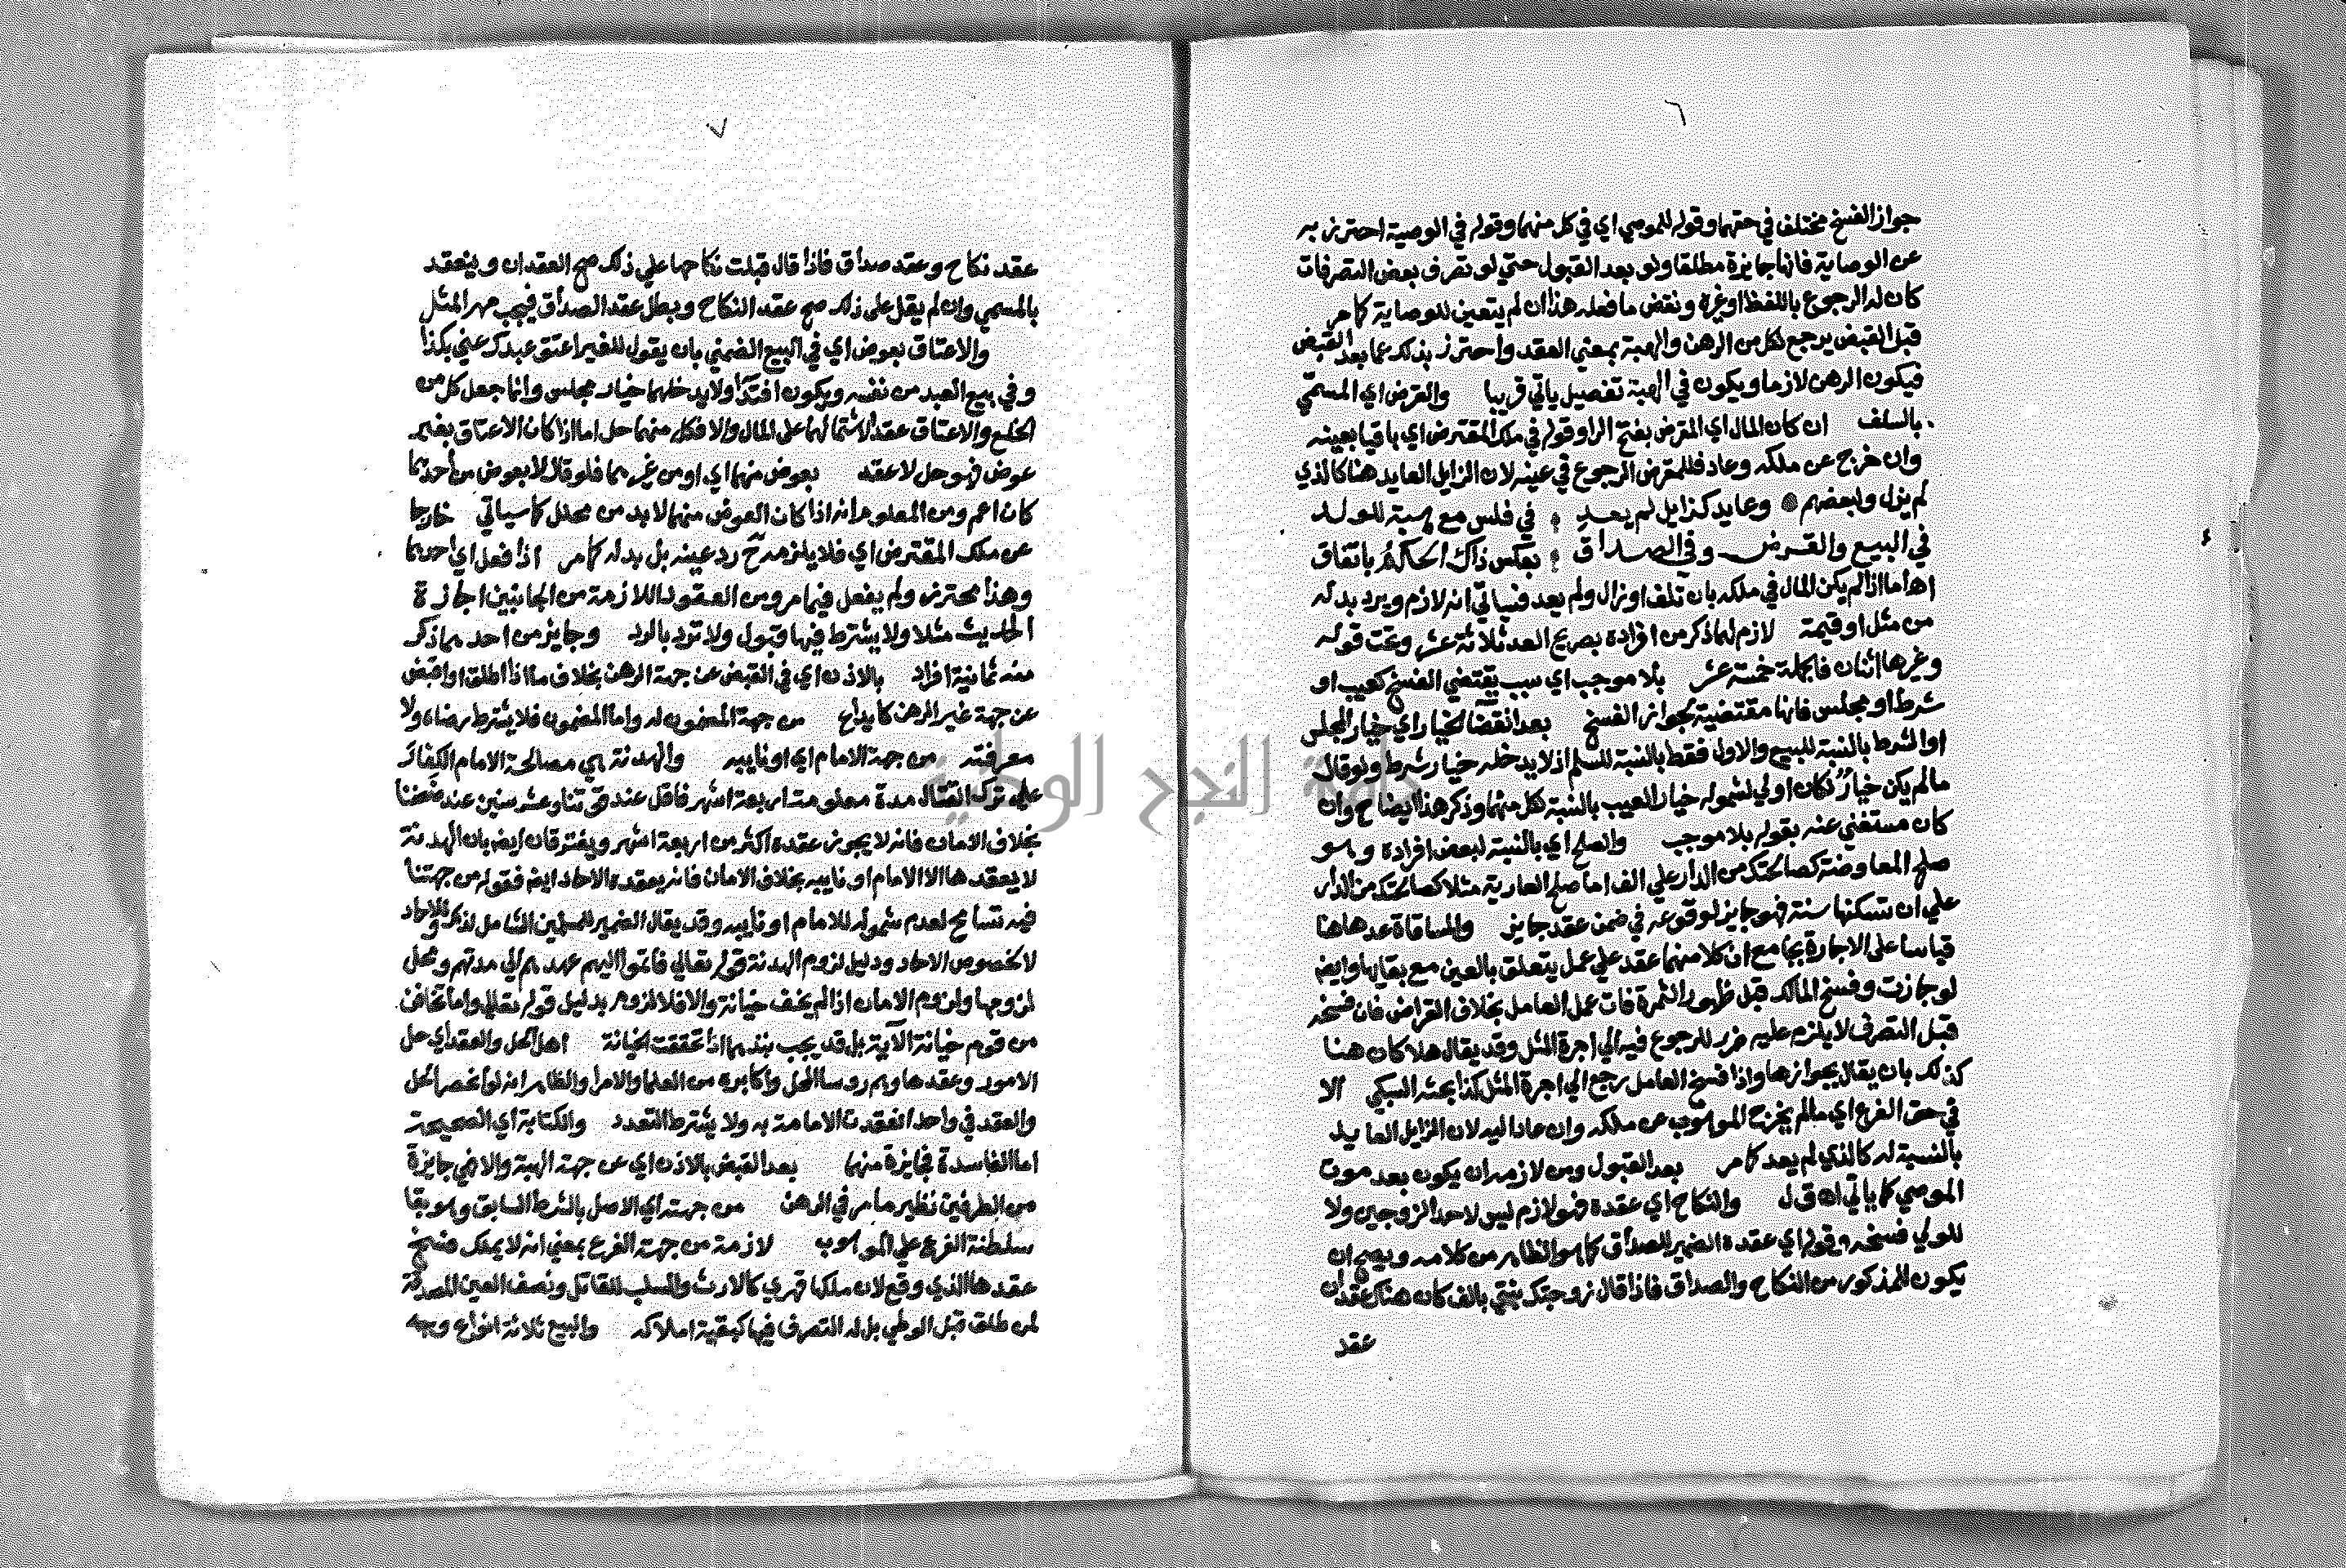 ٦
جواز الفسخ مختلف في حقهما وقوله للموصي اي في كل منهما وقوله في الوصية احترز به
عن الوصاية فانها جايزة مطلقا ولو بعد القبول حتي لو تصرف بعض التصرفات
كان له الرجوع باللفظ او غيره ونقض ما فعله هذا ان لم يتعين للوصاية كما مر
قبل القبض يرجع لكل من الرهن والهبة بمعني العقد واحترز بذلك عما بعد القبض
فيكون الرهن لازما ويكون في الهبة تفصيل ياتي قريبا والقرض اي المسمي
بالسلف ان كان المال اي المقرض بفتح الرا وقوله في ملك المقترض اي باقيا بعينه
وان خرج عن ملكه وعاد فللمقرض الرجوع في عينه لان الزايل العايد هنا كالذي
لم يزل ولبعضهم وعايد كزايل لم يعد في فلس مع هبة للولد
في البيع والقرض وفي الصداق بعكس ذاك الحكم باتفاق
اه اما اذا لم يكن المال في ملكه بان تلف او زال ولم يعد فسياتي انه لازم ويرد بدله
من مثل او قيمة لازم لما ذكر من افراده بصريح العد ثلاثة عشر وتحت قوله
وغيرها اثنان فالجملة خمسة عشر بلا موجب اي سبب يقتضي الفسخ كعيب او
شرط او مجلس فانها مقتضية لجواز الفسخ بعد انقضا الخيار اي خيار المجلس
او الشرط بالنسبة للبيع والاول فقط بالنسبة للسلم اذ لا يدخله خيار شرط ولو قال
ما لم يكن خيار لكان اولي لشموله خيار العيب بالنسبة لكل منهما وذكر هذا ايضاح وان
كان مستغني عنه بقوله بلا موجب والصلح اي بالنسبة لبعض افراده وهو
صلح المعاوضة كصالحتك من الدار علي الف اما صلح العارية مثلا كصالحتك من الدار
علي ان تسكنها سنة فهو جايز لوقوعه في ضمن عقد جايز والمساقاة عدها هنا
قياسا علي الاجارة بجامع ان كلا منهما عقد علي عمل يتعلق بالعين مع بقايها وايضا
لو جازت وفسخ المالك قبل ظهور الثمرة فات عمل العامل بخلاف القراض فان فسخه
قبل التصرف لا يلزم عليه ضرر للرجوع فيه الي اجرة المثل وقد يقال هلا كان هنا
كذلك بان يقال بجوازها واذا فسخ العامل رجع الي اجرة المثل كذا بحثه السبكي الا
في حق الفرع اي ما لم يخرج الموهوب عن ملكه وان عاد اليه لان الزايل العايد
بالنسبة له كالذي لم يعد كما مر بعد القبول ومن لازمه ان يكون بعد موت
الموصي كما ياتي اه ق ل والنكاح اي عقده فهو لازم ليس لاحد الزوجين ولا
للولي فسخه وقوله اي عقده الضمير للصداق كما هو الظاهر من كلامه ويصح ان
يكون للمذكور من النكاح والصداق فاذا قال زوجتك بنتي بالف كان هناك عقدان
عقد
٧
عقد نكاح وعقد صداق فاذا قال قبلت نكاحها علي ذلك صح العقدان وينعقد
بالمسمي وان لم يقل علي ذلك صح عقد النكاح وبطل عقد الصداق فيجب مهر المثل
والاعتاق بعوض اي في البيع الضمني بان يقول للغير اعتق عبدك عني بكذا
وفي بيع العبد من نفسه ويكون افتدا ولا يدخلهما خيار مجلس وانما جعل كل من
الخلع والاعتاق عقدا لاشتمالهما علي المال والا فكل منهما حل اما اذا كان الاعتاق بغير
عوض فهو حل لا عقد بعوض منهما اي او من غيرهما فلو قال لا بعوض من احدهما
كان اعم ومن المعلوم انه اذا كان العوض منهما لا بد من محلل كما سياتي خارجا
عن ملك المقترض اي فلا يلزمه ح رد عينه بل بدله كما مر اذا فعل اي احدهما
وهذا محترز ولم يفعل فيما مر ومن العقود اللازمة من الجانبين اجازة
الحديث مثلا ولا يشترط فيها قبول ولا ترد بالرد وجايز من احدهما ذكر
منه ثمانية افراد بالاذن اي في القبض عن جهة الرهن بخلاف ما اذا اطلق او اقبض
عن جهة غير الرهن كايداع من جهة المضمون له واما المضمون فلا يشترط رضاه ولا
معرفته من جهة الامام اي او نايبه والهدنة هي مصالحة الامام الكفار
علي ترك القتال مدة معلومة اربعة اشهر فاقل عند قوتنا وعشر سنين عند ضعفنا
بخلاف الامان فانه لا يجوز عقده اكثر من اربعة اشهر ويفترقان ايضا بان الهدنة
لا يعقدها الا الامام او نايبه بخلاف الامان فانه يعقده الاحاد ايضا فقوله من جهتنا
فيه تسامح لعدم شموله للامام او نايبه وقد يقال الضمير للمسلمين الشامل لذلك وللاحاد
لا لخصوص الاحاد ودليل لزوم الهدنة قوله تعالي فاتموا اليهم عهدهم الي مدتهم ومحل
لزومها ولزوم الامان اذا لم يخف خيانة والا فلا لزوم بدليل قوله تعالي واما تخافن
من قوم خيانة الآية بل قد يجب نبذهما اذا تحققت الخيانة اهل الحل والعقد اي حل
الامور وعقدها وهم روسا المحل واكابره من العلما والامرا والظاهر انه لو انحصر الحل
والعقد في واحد انعقدت الامامة به ولا يشترط التعدد والكتابة اي الصحيحة
اما الفاسدة فجايزة منهما بعد القبض بالاذن اي عن جهة الهبة والا فهي جايزة
من الطرفين نظير ما مر في الرهن من جهته اي الاصل بالشرط السابق وهو بقا
سلطنة الفرع علي الموهوب لازمة من جهة الفرع بمعني انه لا يملك فسخ
عقدها الذي وقع لان ملكها قهري كالارث والسلب للقاتل ونصف العين المصدقة
لمن طلق قبل الوطي بل له التصرف فيها كبقية املاكه والبيع ثلاثة انواع وجه
جامعة النجاح الوطنية